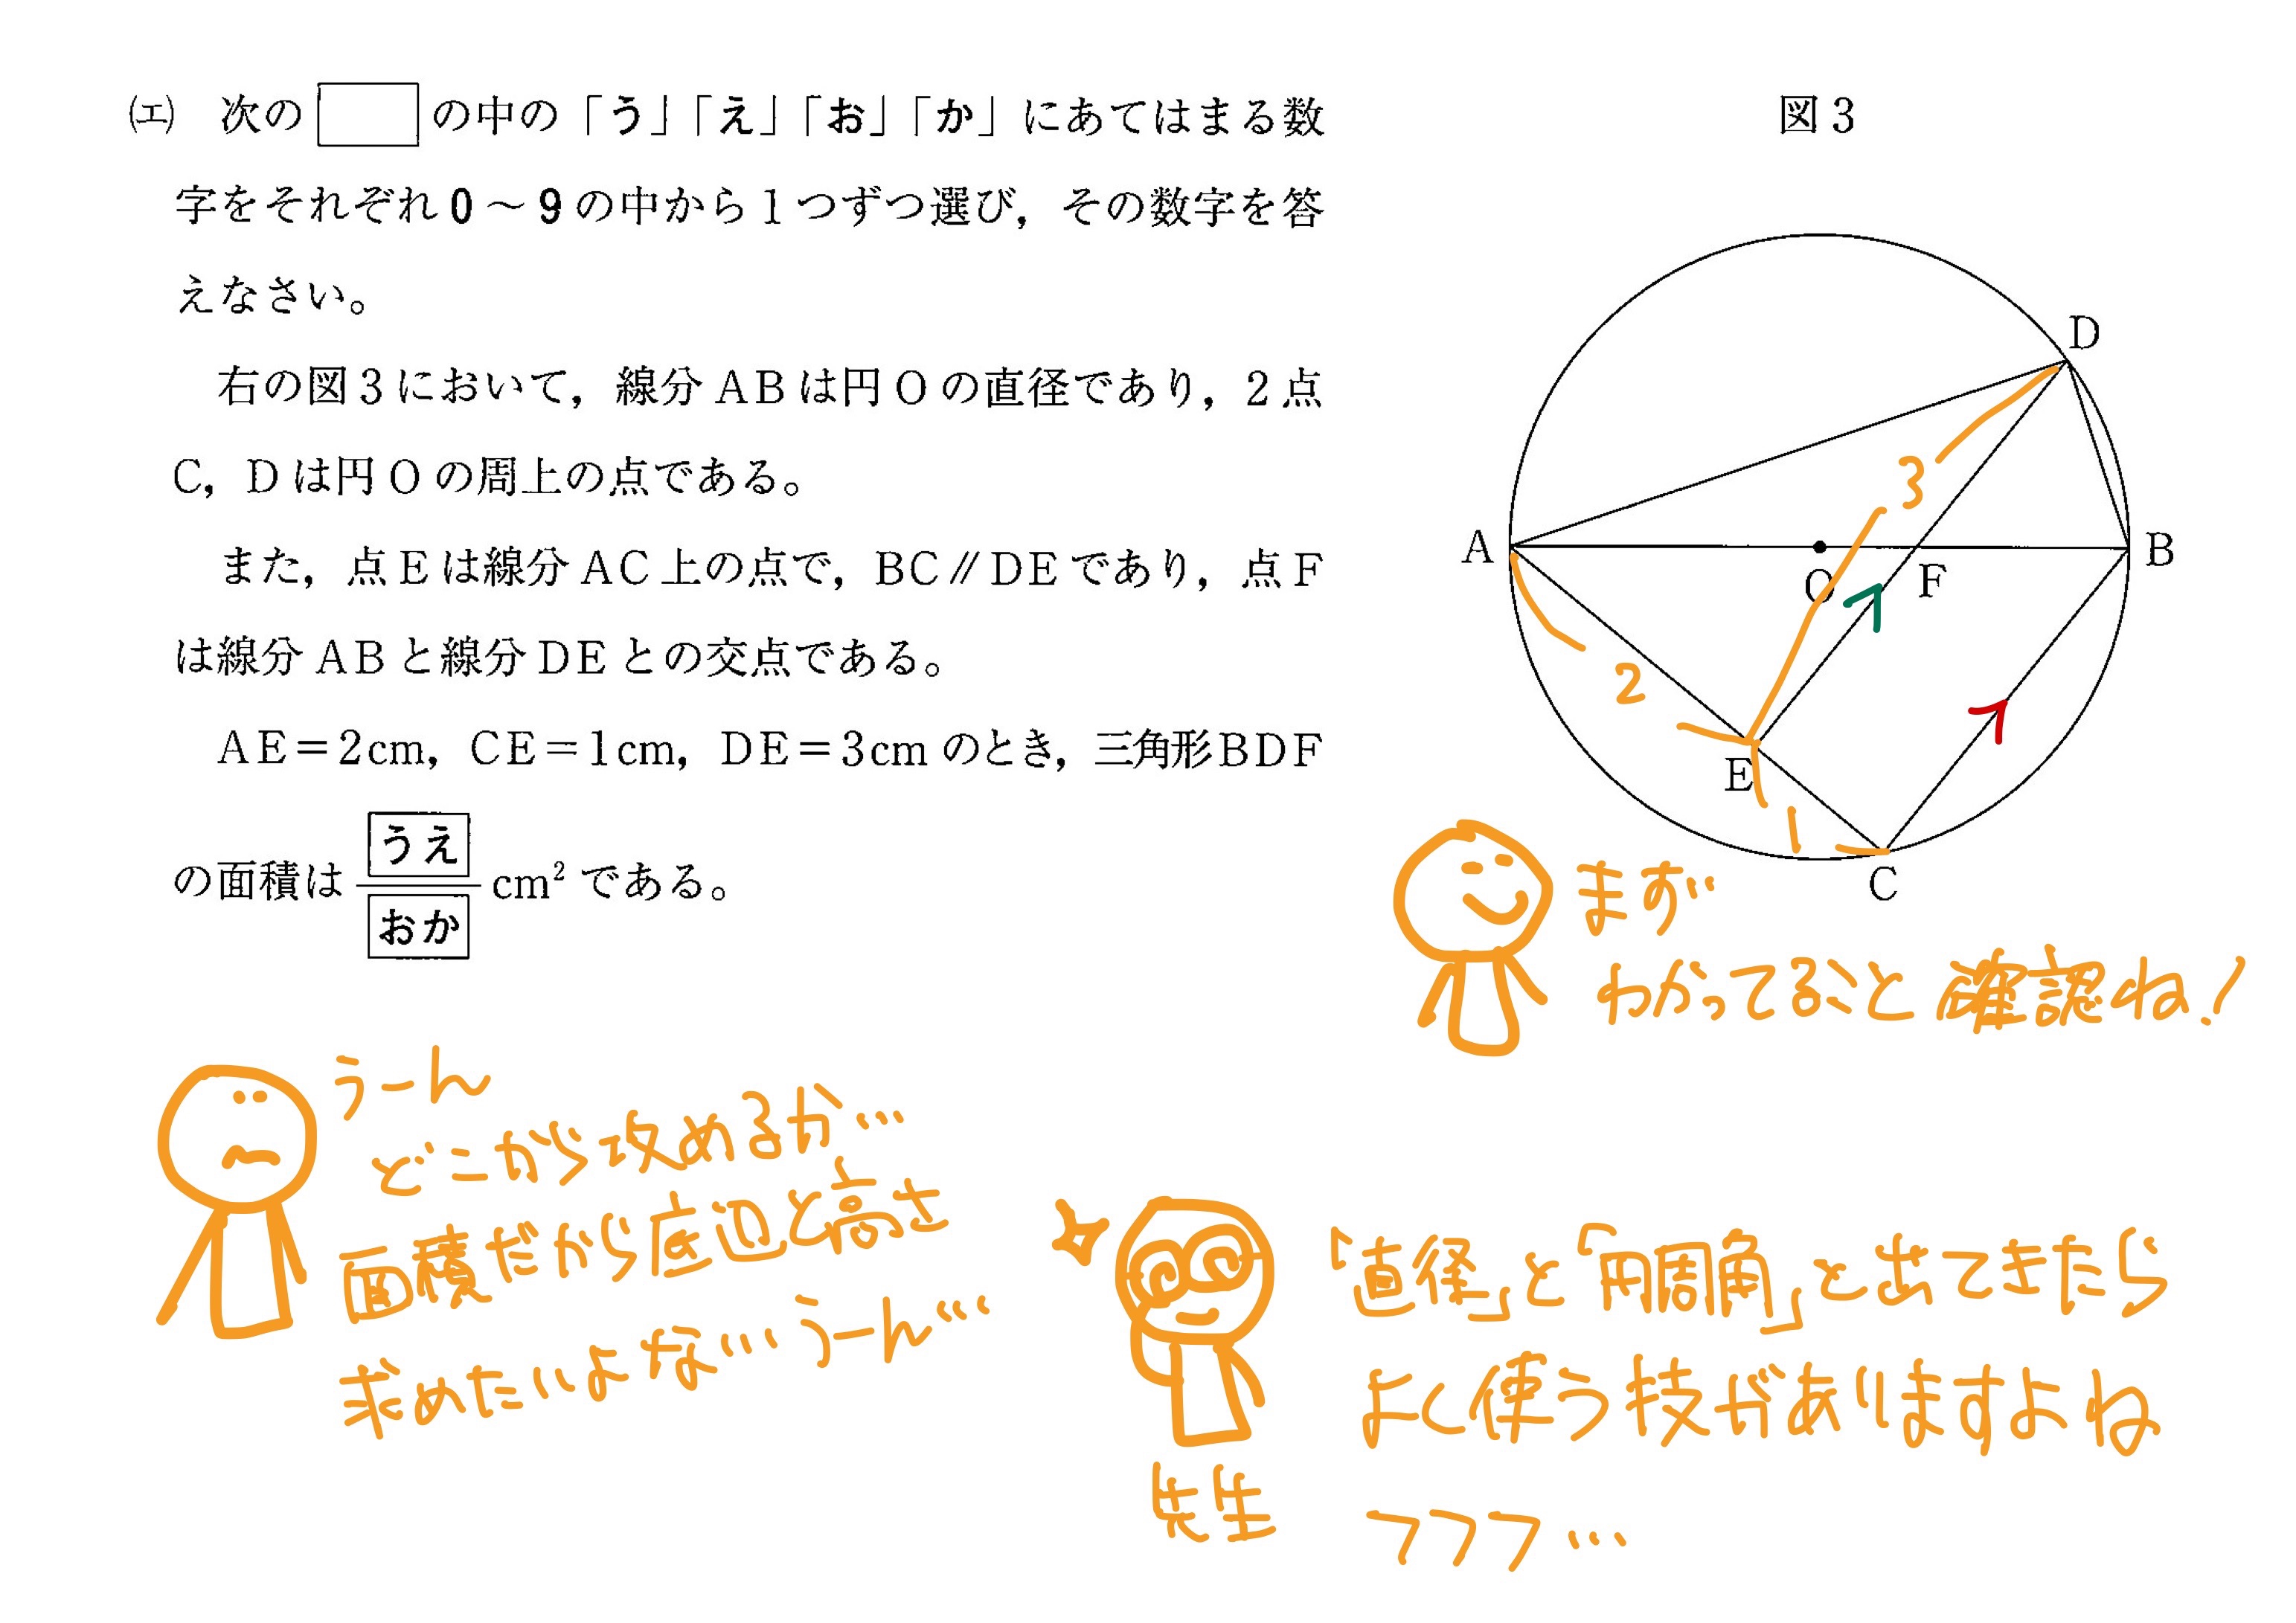 (エ) 次の の中の「う」「え」「お」「か」にあてはまる数
字をそれぞれ0～9の中から1つずつ選び，その数字を答
えなさい。
右の図3において，線分ABは円Oの直径であり，2点
C，Dは円Oの周上の点である。
また，点Eは線分AC上の点で，BC∥DEであり，点F
は線分ABと線分DEとの交点である。
AE＝2cm，CE＝1cm，DE＝3cmのとき，三角形BDF
うえ
の面積は cm²である。
おか
図3
D
3
A
B
O
F
2
E
1
C
まず
わかってること確認ね！
うーん
どこから攻めるか…
面積だから底辺と高さ
求めたいよな…うーん…
「直径」と「円周角」と出てきたら
よく使う技がありますよね
フフフ…
先生